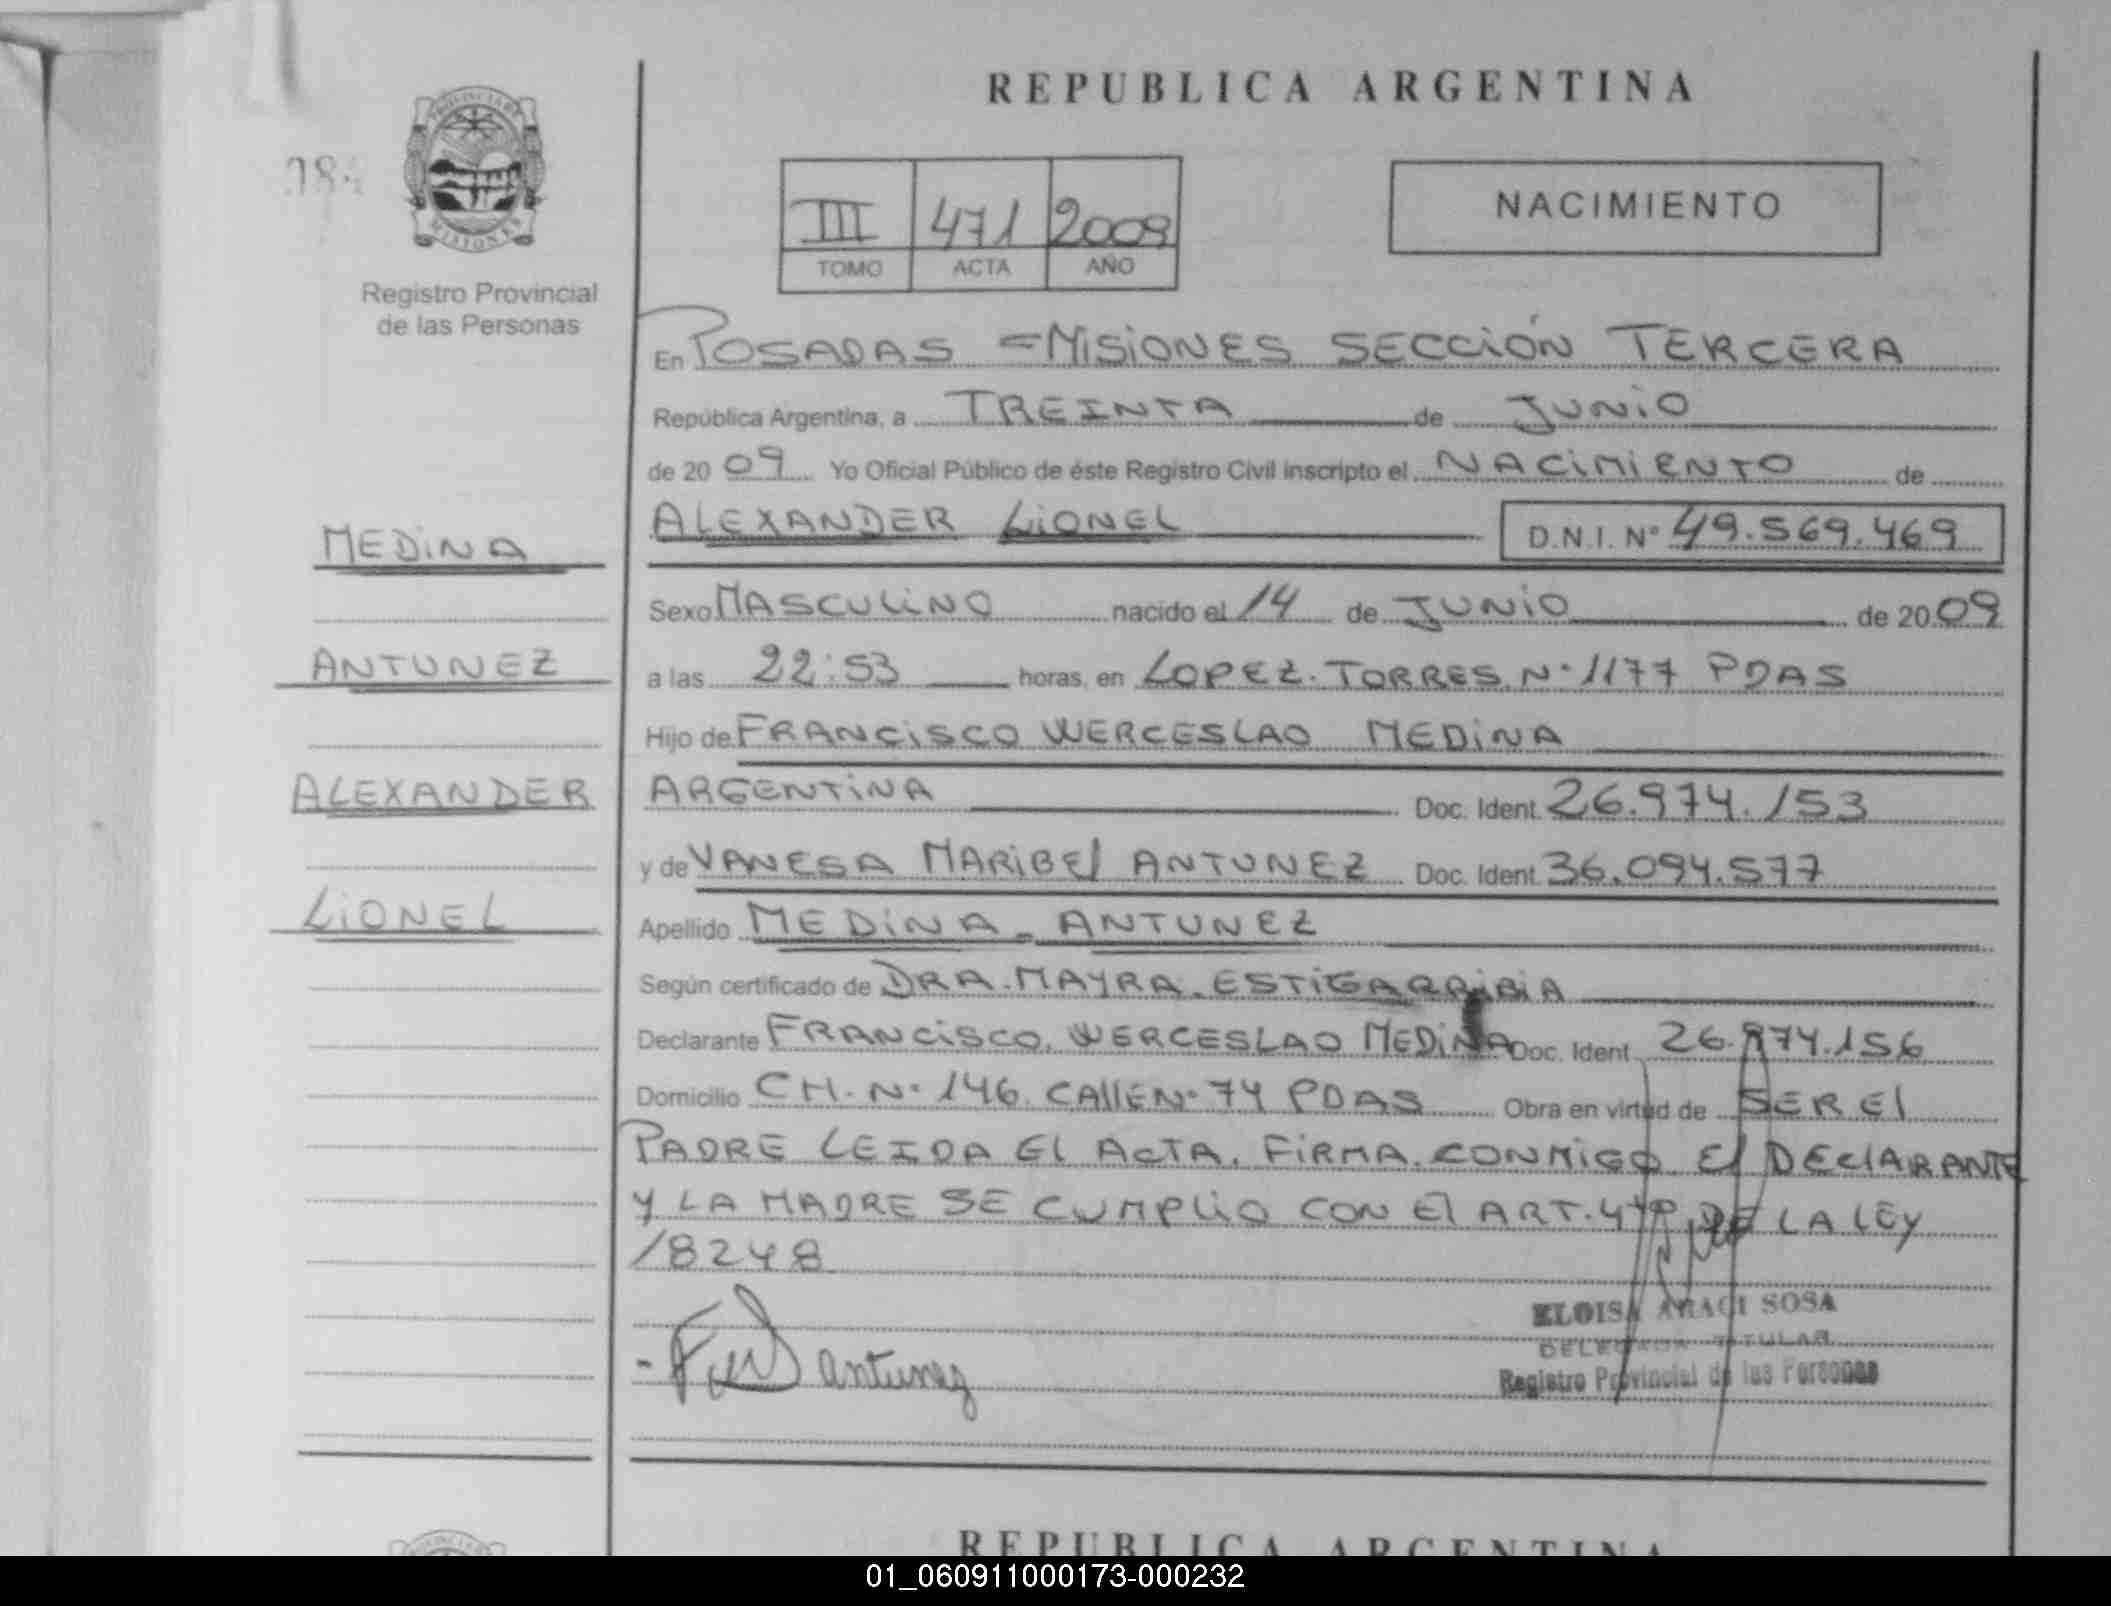 REPUBLICA ARGENTINA
PROVINCIA DE
MISIONES
Registro Provincial
de las Personas
III 471 2009
TOMO ACTA AÑO
NACIMIENTO
En POSADAS =MISIONES SECCIÓN TERCERA
República Argentina, a TREINTA de JUNIO
de 20 09 Yo Oficial Público de éste Registro Civil inscripto el NACIMIENTO de
ALEXANDER LIONEL D.N.I. Nº 49.569.469
MEDINA
Sexo MASCULINO nacido el 14 de JUNIO de 20 09
ANTUNEZ
a las 22:53 horas, en LOPEZ. TORRES. Nº 1177 PDAS
Hijo de FRANCISCO WERCESLAO MEDINA
ALEXANDER
ARGENTINA Doc. Ident. 26.974.153
y de VANESA MARIBEl ANTUNEZ Doc. Ident. 36.094.577
LIONEL
Apellido MEDINA - ANTUNEZ
Según certificado de DRA. MAYRA. ESTIGARRIBIA
Declarante FRANCISCO. WERCESLAO MEDINA Doc. Ident. 26.974.156
Domicilio CH. Nº 146. CAllE Nº 74 PDAS Obra en virtud de SER El
PADRE LEIDA El ACTA. FIRMA. CONMIGO El DEClARANTE
Y LA MADRE SE CUMPLIO CON El ART. DE LA LEY
18248
antunez
ELOISA ARACI SOSA
DELEGADA TITULAR
Registro Provincial de las Personas
REPUBLICA ARGENTINA
01_060911000173-000232